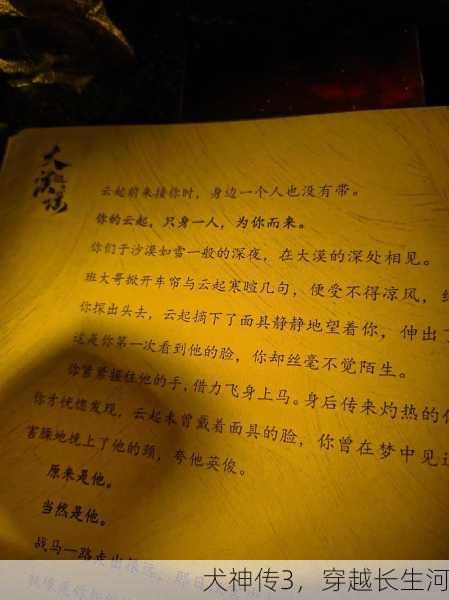 大漠谣
云起前来接你时，身边一个人也没有带。
你的云起，只身一人，为你而来。
你们于沙漠如雪一般的深夜，在大漠的深处相见。
班大哥掀开车帘与云起寒暄几句，便受不得凉风，
你探出头去，云起摘下了面具静静地望着你，伸出了
这是你第一次看到他的脸，你却丝毫不觉陌生。
你紧紧握住他的手，借力飞身上马。身后传来灼热的
你才恍惚发现，云起未曾戴着面具的脸，你曾在梦中见过
害臊地拢上了他的颈，夸他英俊。
原来是他。
当然是他。
战马一路走出很远，那日
就像是你
犬神传3，穿越长生河